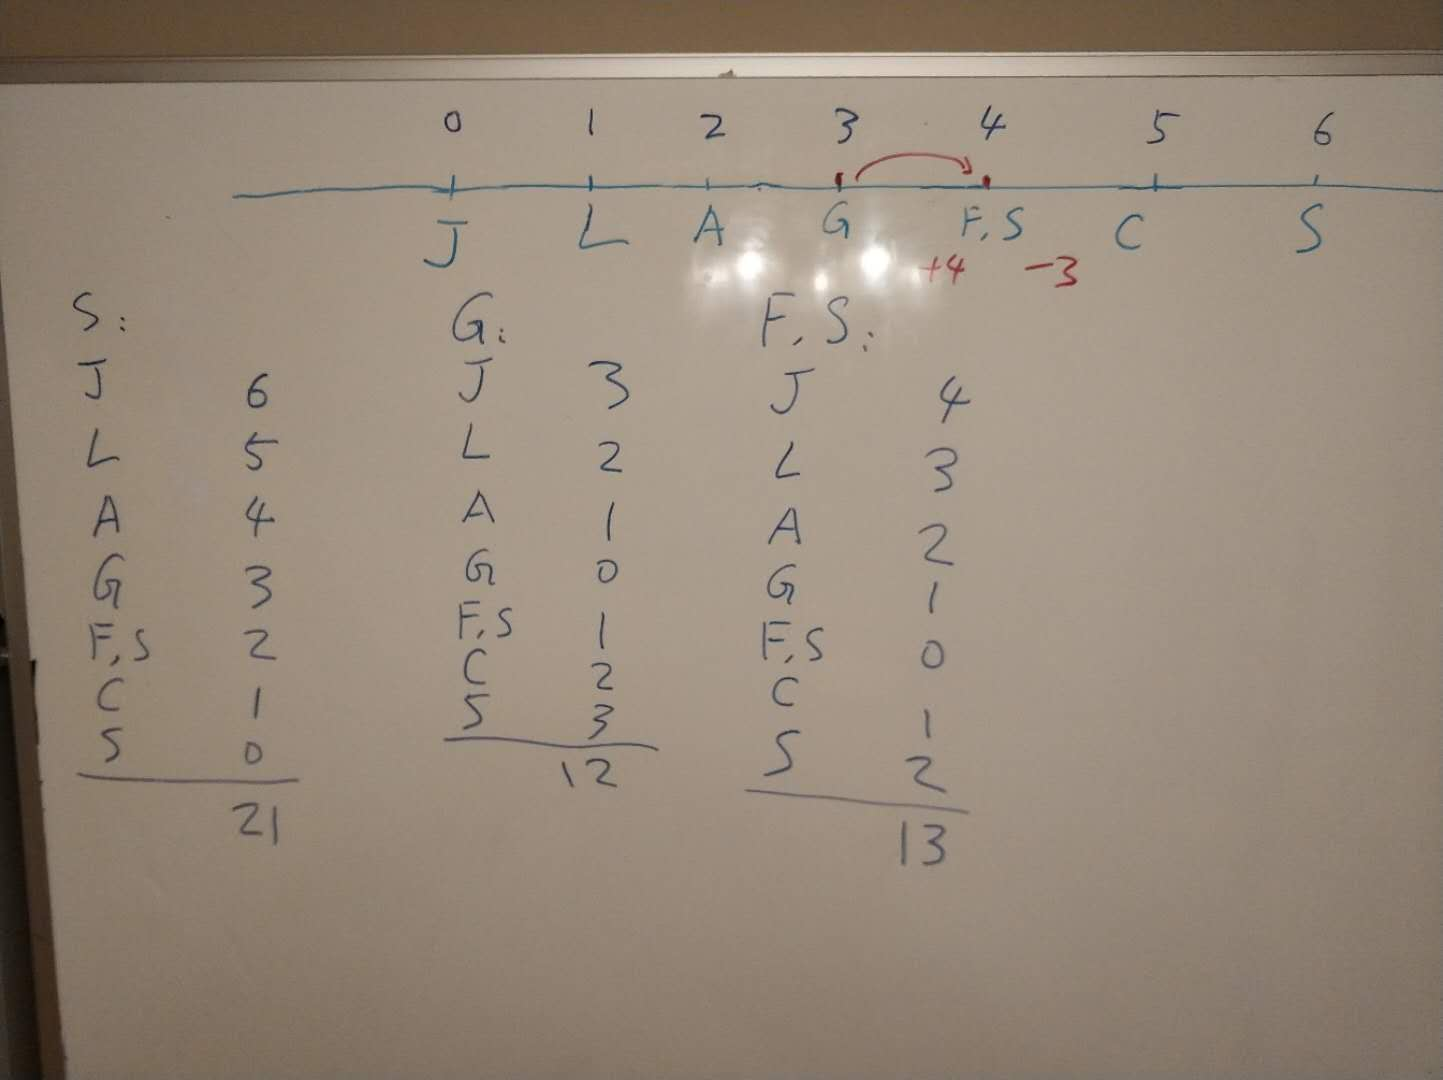 0 1 2 3 4 5 6
J L A G F,S C S
+4 -3
S:
J 6
L 5
A 4
G 3
F,S 2
C 1
S 0
21
G:
J 3
L 2
A 1
G 0
F,S 1
C 2
S 3
12
F,S:
J 4
L 3
A 2
G 1
F,S 0
C 1
S 2
13